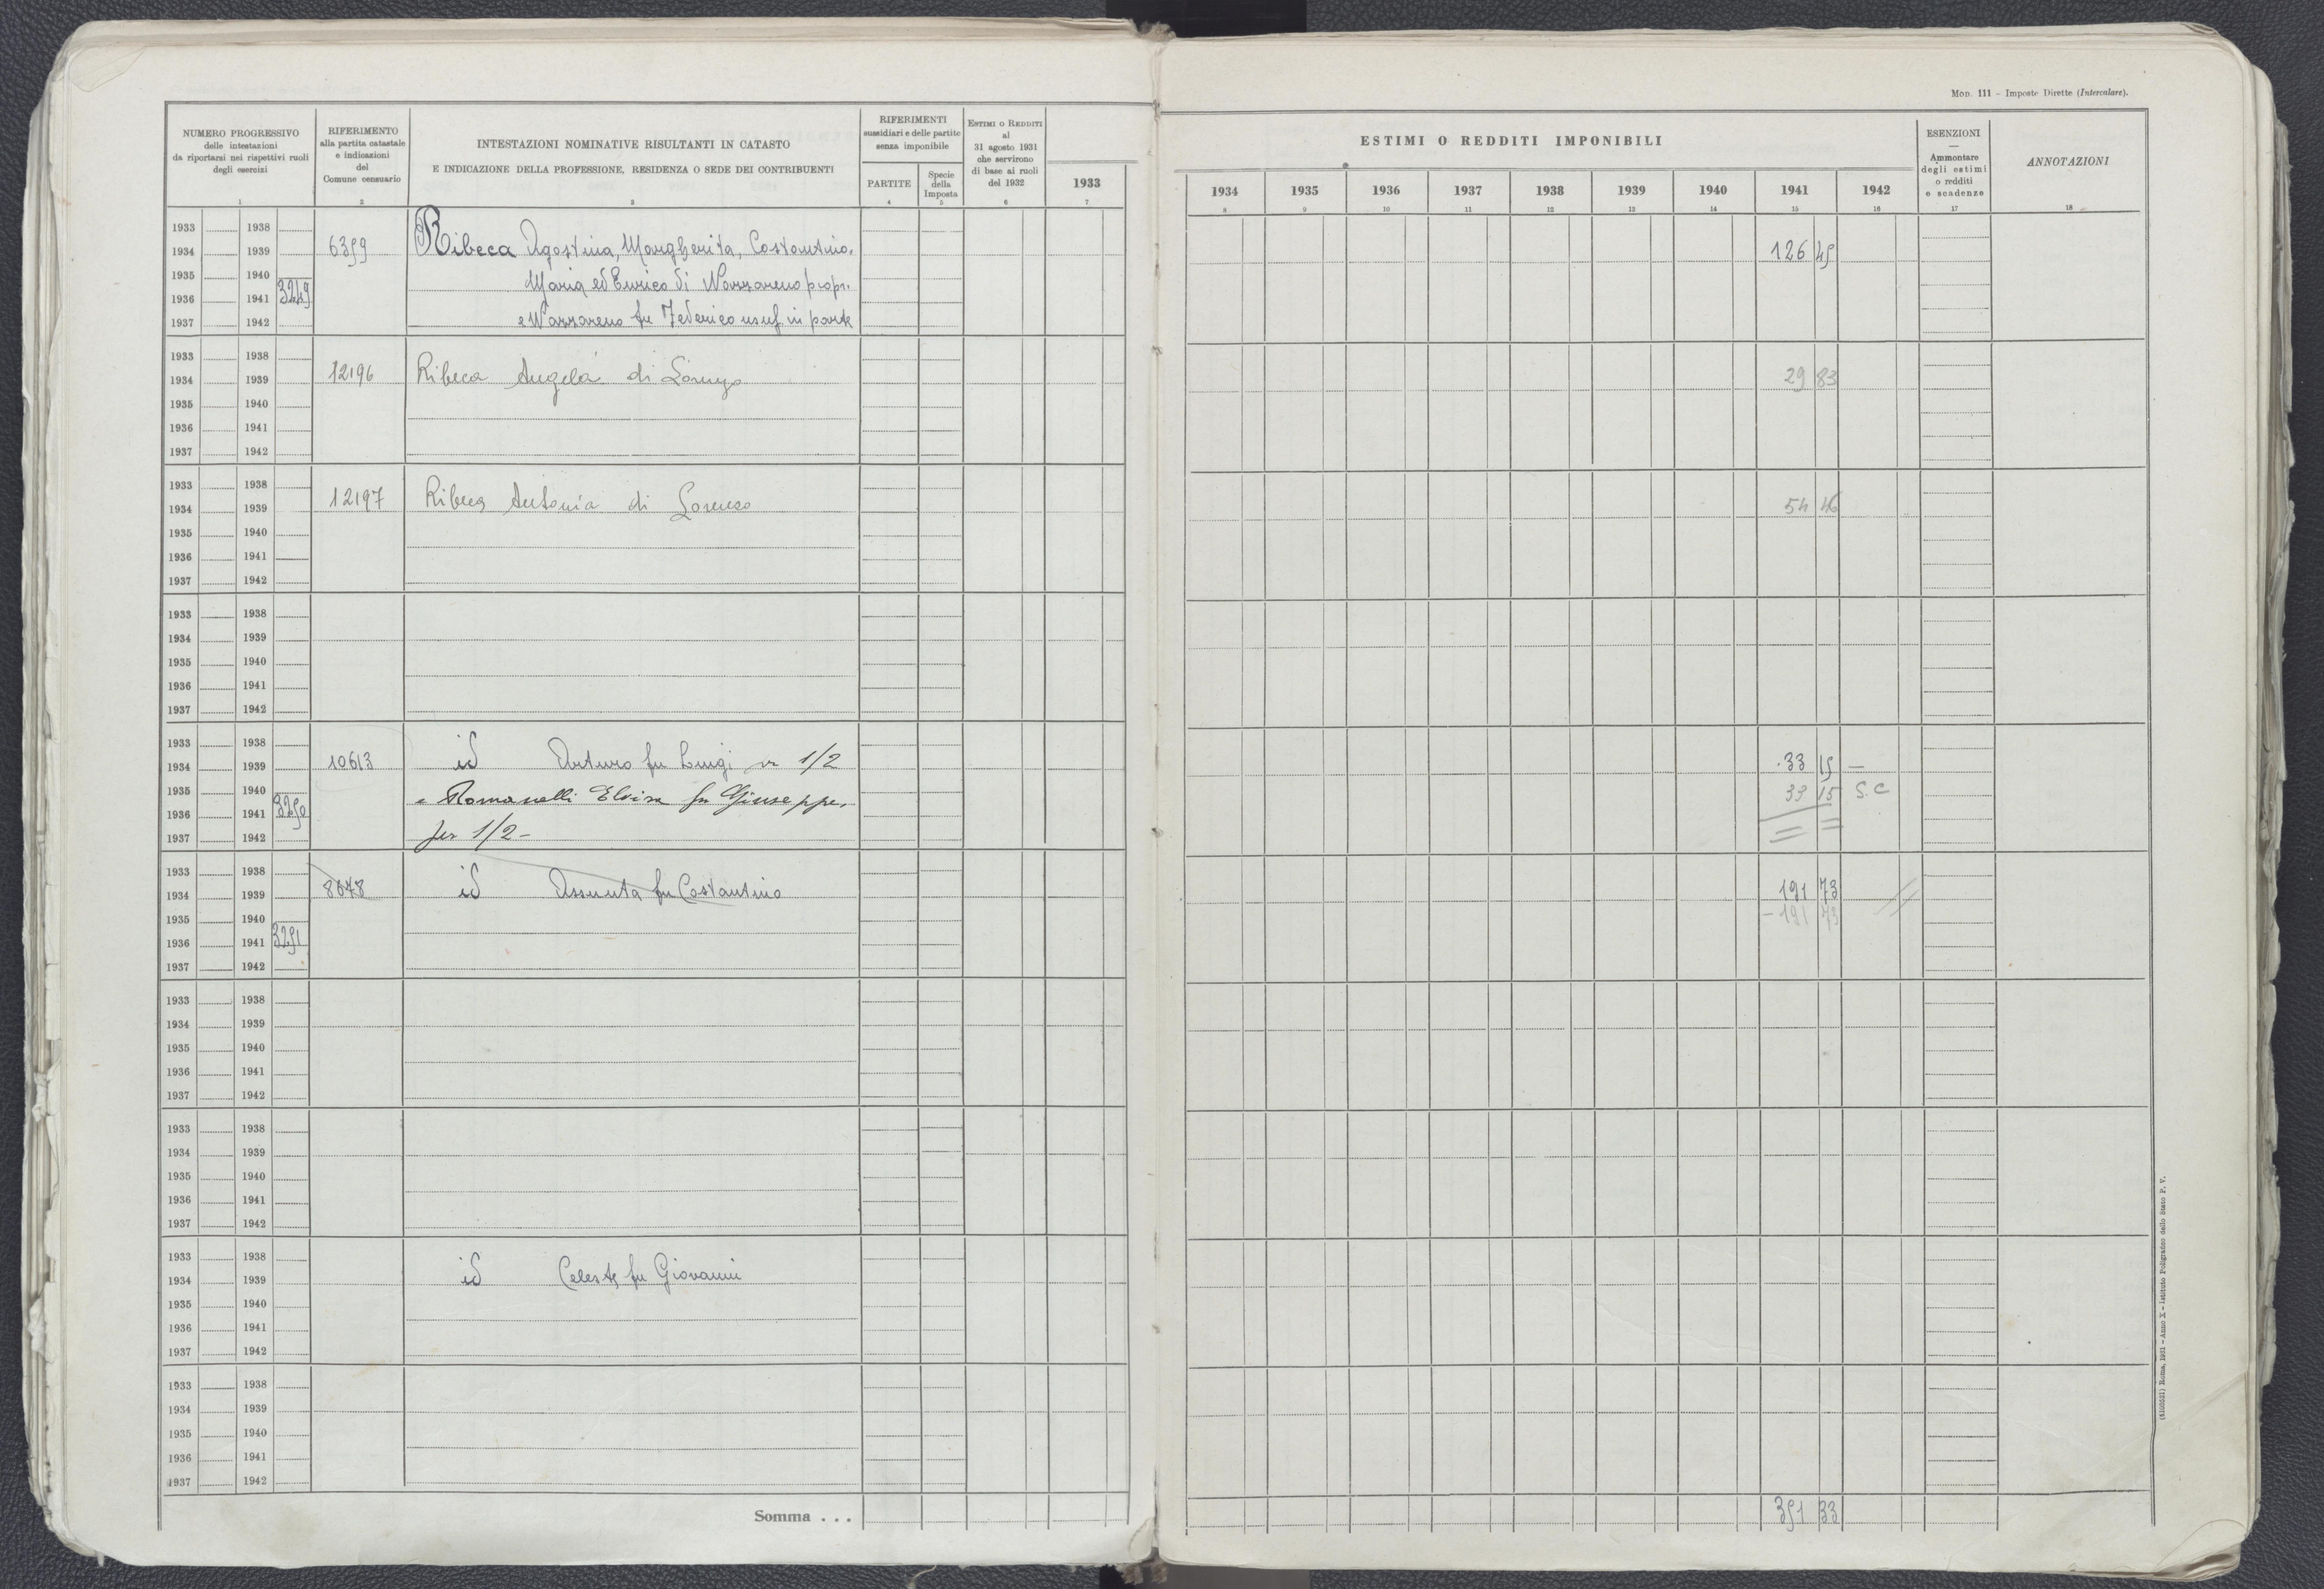 Mod. 111 - Imposte Dirette (Intercalare).
NUMERO PROGRESSIVO
delle intestazioni
da riportarsi nei rispettivi ruoli
degli esercizi
1
RIFERIMENTO
alla partita catastale
e indicazioni
del
Comune censuario
2
INTESTAZIONI NOMINATIVE RISULTANTI IN CATASTO
E INDICAZIONE DELLA PROFESSIONE, RESIDENZA O SEDE DEI CONTRIBUENTI
3
RIFERIMENTI
sussidiari e delle partite
senza imponibile
PARTITE
4
Specie
della
Imposta
5
ESTIMI O REDDITI
al
31 agosto 1931
che servirono
di base ai ruoli
del 1932
6
1933
7
ESTIMI O REDDITI IMPONIBILI
1934 1935 1936 1937 1938 1939 1940 1941 1942
8 9 10 11 12 13 14 15 16
ESENZIONI
—
Ammontare
degli estimi
o redditi
e scadenze
17
ANNOTAZIONI
18
1933 1938
1934 1939 6359 Ribeca Agostina, Margherita, Costantino, 126 45
1935 1940 Maria ed Enrico di Nazzareno propr.
1936 1941 3249
1937 1942 e Nazzareno fu Federico usuf. in parte
1933 1938
1934 1939 12196 Ribeca Angela di Lorenzo 29 83
1935 1940
1936 1941
1937 1942
1933 1938
1934 1939 12197 Ribeca Antonia di Lorenzo 54 46
1935 1940
1936 1941
1937 1942
1933 1938
1934 1939
1935 1940
1936 1941
1937 1942
1933 1938
1934 1939 10613 id Arturo fu Luigi 1/2 33 15 —
1935 1940 e Romanelli Elvira fu Giuseppe, 33 15 S.C
1936 1941 3250
1937 1942 per 1/2 -
1933 1938
1934 1939 8078 id Assunta fu Costantino 191 73
1935 1940 - 191 73
1936 1941 3251
1937 1942
1933 1938
1934 1939
1935 1940
1936 1941
1937 1942
1933 1938
1934 1939
1935 1940
1936 1941
1937 1942
1933 1938
1934 1939 id Celeste fu Giovanni
1935 1940
1936 1941
1937 1942
1933 1938
1934 1939
1935 1940
1936 1941
1937 1942
Somma . . . 351 33
(8100551) Roma, 1931 - Anno X - Istituto Poligrafico dello Stato P. V.